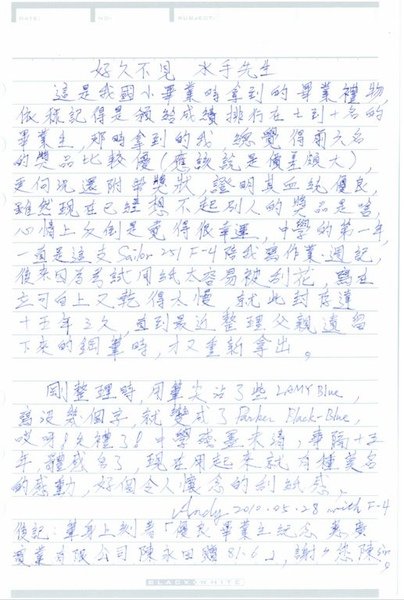 DATE: NO: SUBJECT:
好久不見 水手先生
這是我國小畢業時拿到的畢業禮物,
依稀記得是頒給成績排行在七到十名的
畢業生,那時拿到的我,總覺得前六名
的獎品比較優(應該說是價差頗大),
更何況還附帶獎狀,證明其血統優良,
雖然現在已經想不起別人的獎品是啥,
心情上久倒是覺得很幸運,中學的第一年,
一直是這支Sailor 251 F-4陪我寫作業、週記,
後來因為考試用紙太容易被刮花,寫在
立可白上又乾得太慢,就此封存達
十五年之久,直到最近整理父親遺留
下來的鋼筆時,才又重新拿出。
剛整理時,用筆尖沾了些LAMY Blue,
寫沒幾個字,就變成了Parker Black-Blue,
哎呀!久裡了!中學墨未清,事隔十五
年,體感名了,現在用起來就有種莫名
的感動,好個令人懷念的刮紙感。
Andy 2010.05.28 with F-4
後記:筆身上刻著「優良畢業生紀念
實業有限公司 陳永田贈 81.6」,謝謝您陳Sir。
BLACK WHITE